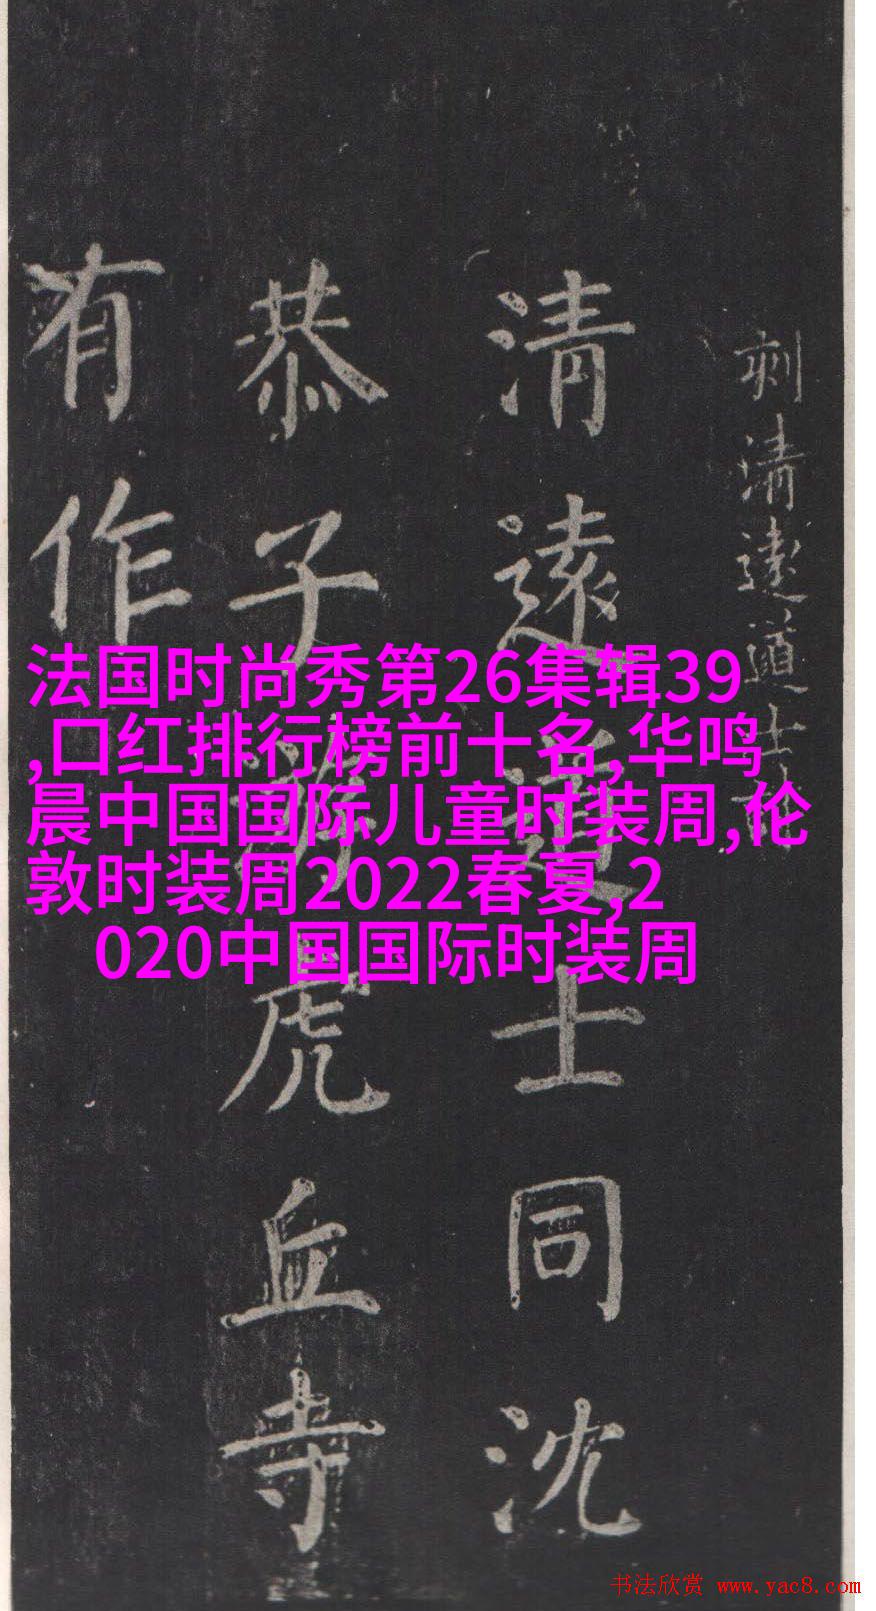 刻清遠道士
清遠道士同沈
恭子遊虎丘寺
有作
法国时尚秀第26集辑39
,口红排行榜前十名,华鸣
晨中国国际儿童时装周,伦
敦时装周2022春夏,2
020中国国际时装周
书法欣赏 www.yac8.com